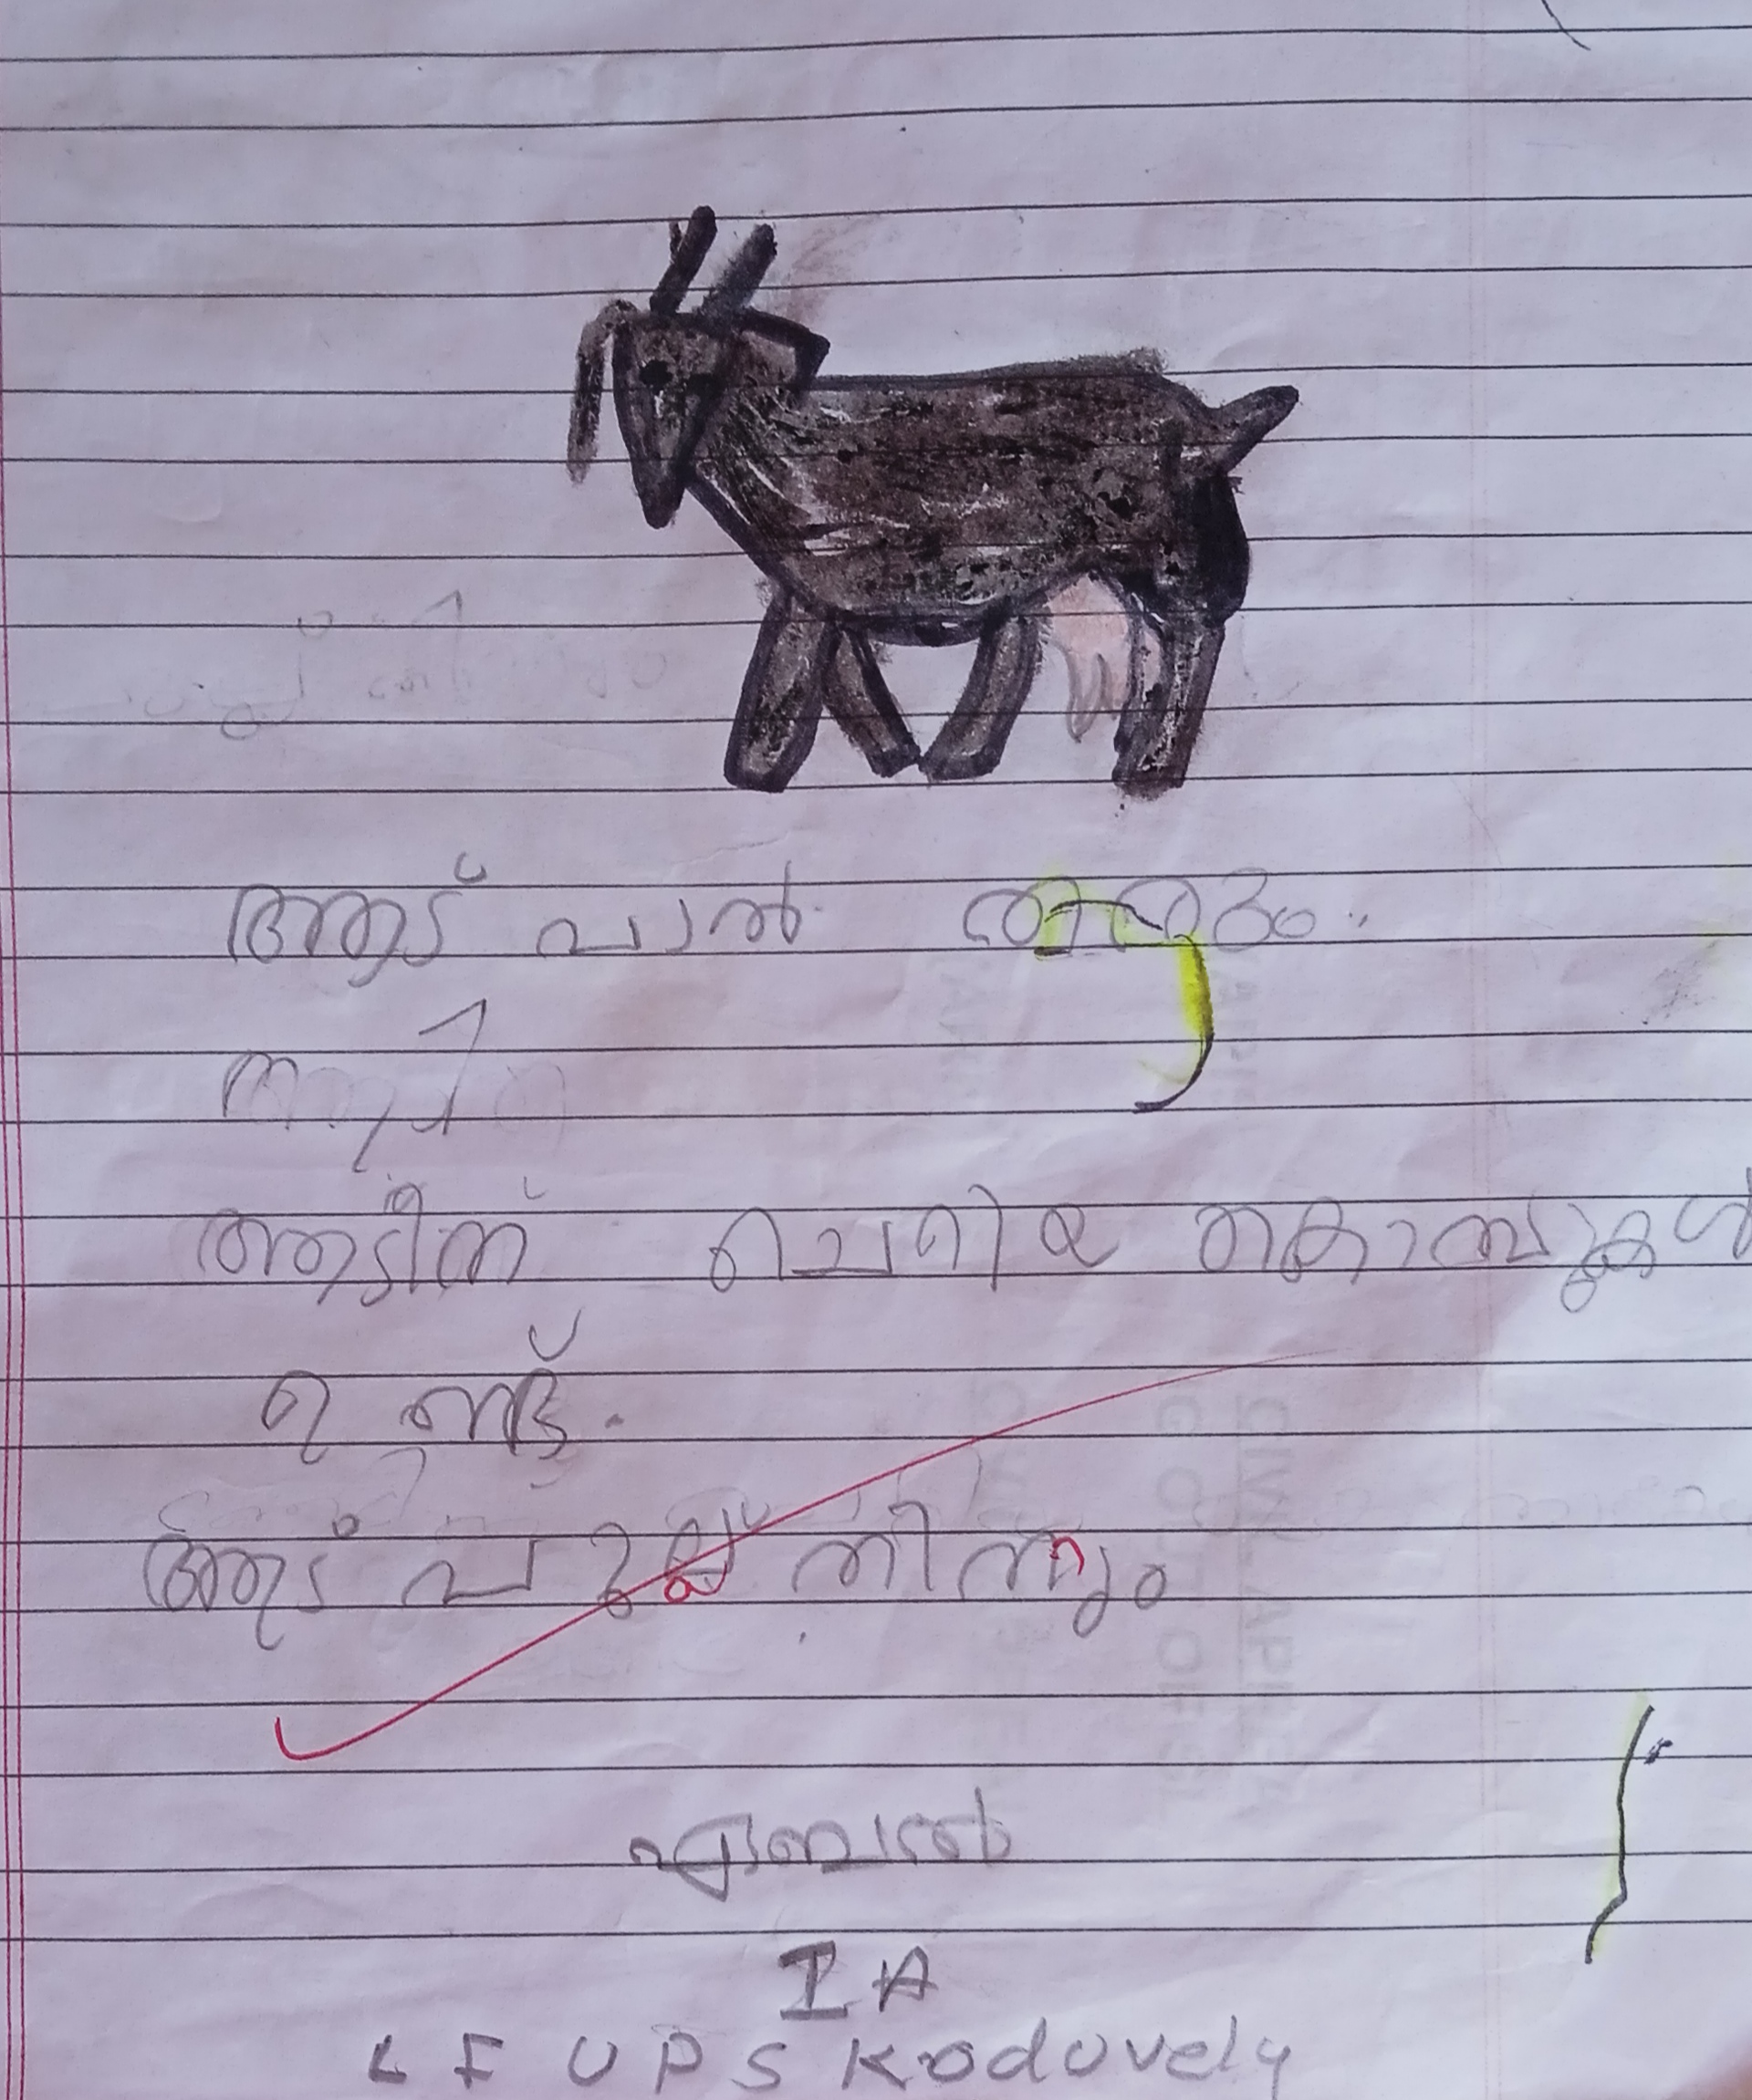 ആട് പാൽ തരും..
ആടിന് ചെറിയ കൊമ്പുകൾ
ഉണ്ട്.
ആട് പുല്ല് തിന്നും
ഏബൽ
I A
L F U P S Koduvely